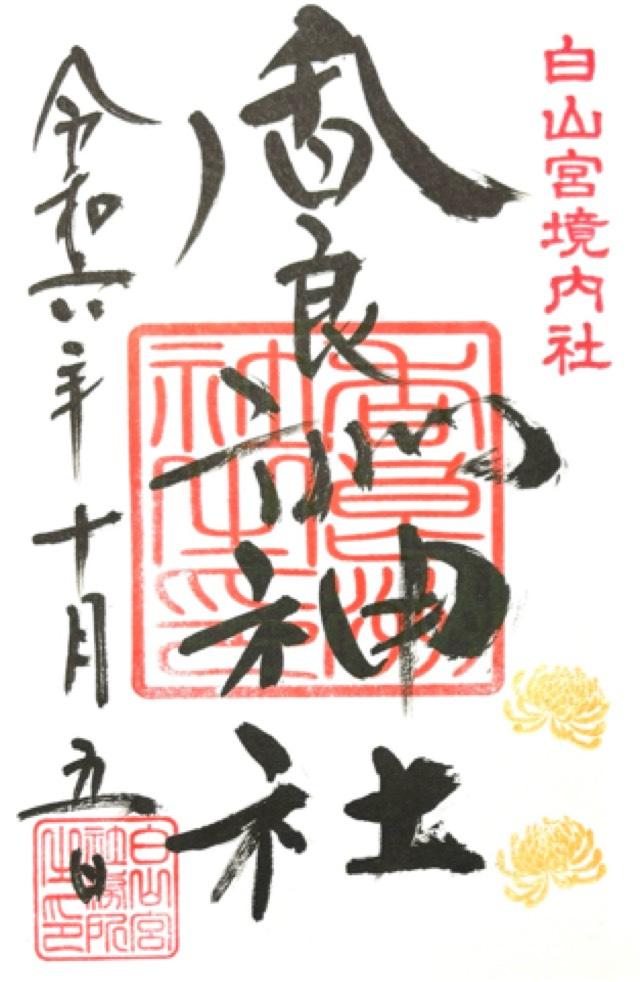 白山宮境内社
香良洲神社
令和六年十月五日
白山宮
社務所
之印